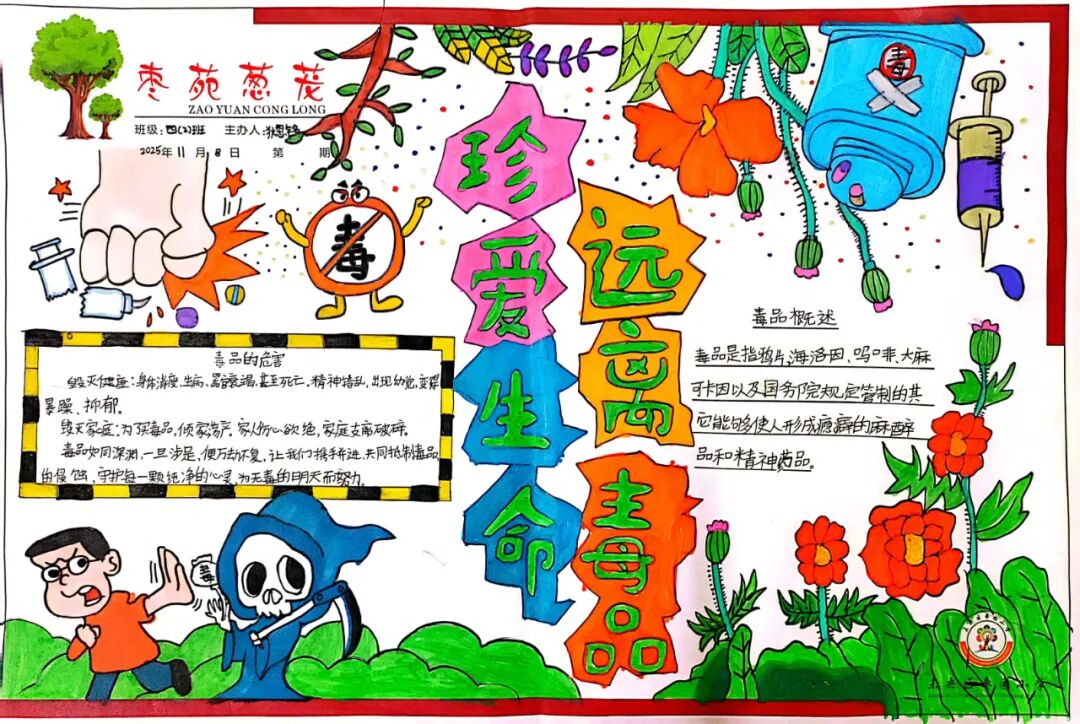 枣苑葱茏
ZAO YUAN CONG LONG
班级:四(2)班 主办人:狄思锦
2025年11月8日 第 期
珍爱生命
远离毒品
毒
毒
毒品的危害
毁灭健康:身体消瘦、生病、器官衰竭,甚至死亡,精神错乱,出现幻觉,变得
暴躁、抑郁。
毁灭家庭:为买毒品,倾家荡产。家人伤心欲绝,家庭支离破碎。
毒品如同深渊,一旦涉足,便万劫不复,让我们携手并进,共同抵制毒品
的侵蚀,守护每一颗纯净的心灵,为无毒的明天而努力。
毒品概述
毒品是指鸦片,海洛因、吗啡、大麻
可卡因以及国务院规定管制的其
它能够使人形成瘾癖的麻醉
品和精神药品。
毒